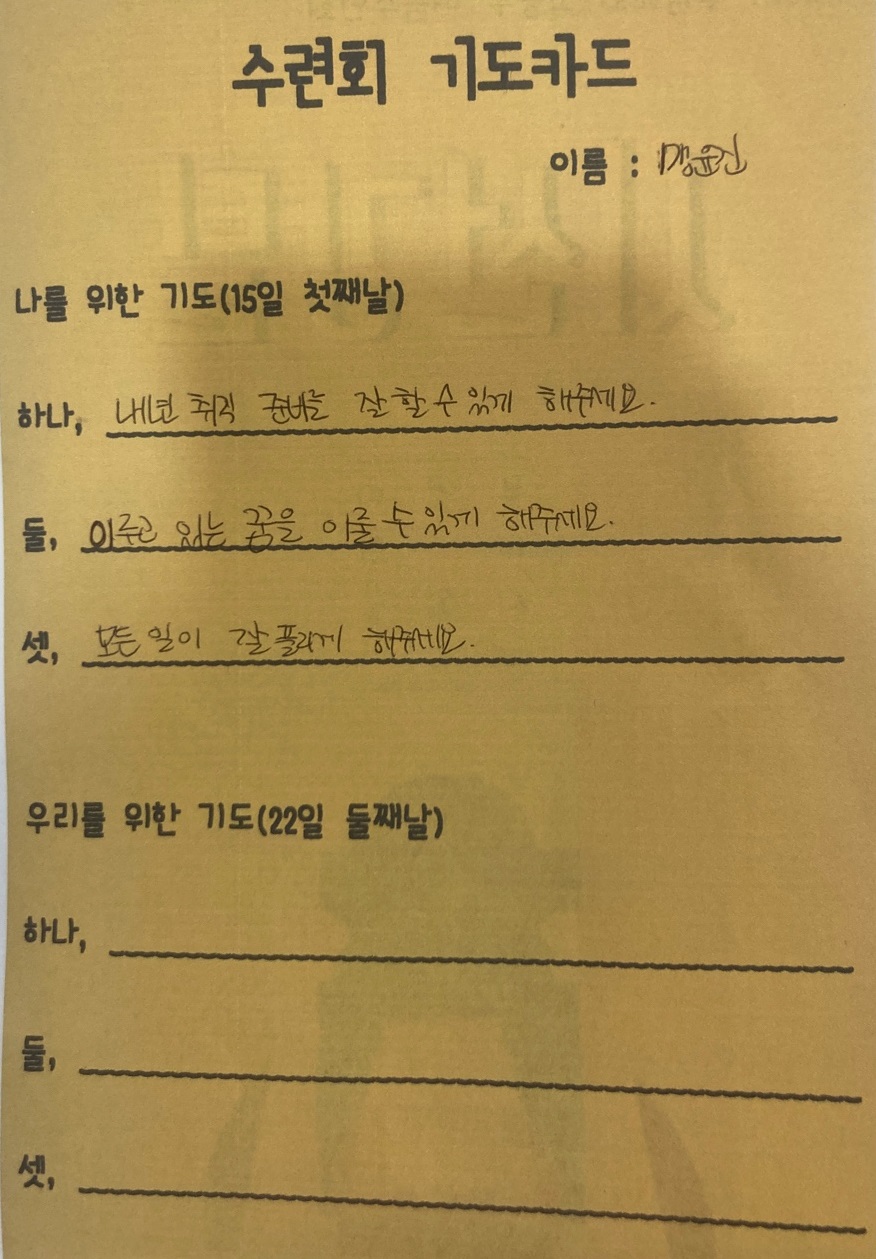 수련회 기도카드
이름 : 맹윤진
나를 위한 기도(15일 첫째날)
하나, 내년 취직 준비를 잘 할 수 있게 해주세요.
둘, 이루고 있는 꿈을 이룰 수 있게 해주세요.
셋, 모든 일이 잘 풀리게 해주세요.
우리를 위한 기도(22일 둘째날)
하나,
둘,
셋,